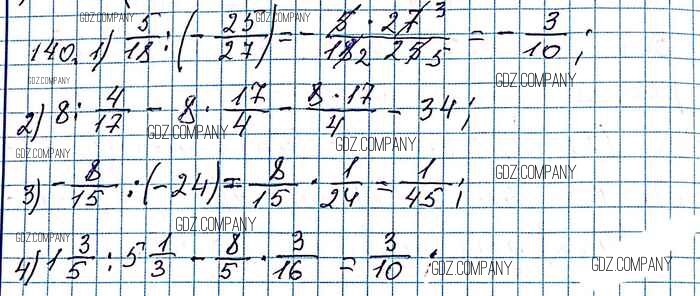 140. 1) 5/18 : (- 25/27) = - 5 · 27 3 / 18 2 25 5 = - 3/10 ;
2) 8 : 4/17 - 8 · 17/4 - 8 · 17 / 4 - 34 ;
3) - 8/15 : (-24) = 8/15 · 1/24 = 1/45 ;
4) 1 3/5 : 5 1/3 - 8/5 · 3/16 = 3/10 ;
GDZ.COMPANY
GDZ.COMPANY
GDZ.COMPANY
GDZ.COMPANY
GDZ.COMPANY
GDZ.COMPANY
GDZ.COMPANY
GDZ.COMPANY
GDZ.COMPANY
GDZ.COMPANY
GDZ.COMPANY
GDZ.COMPANY